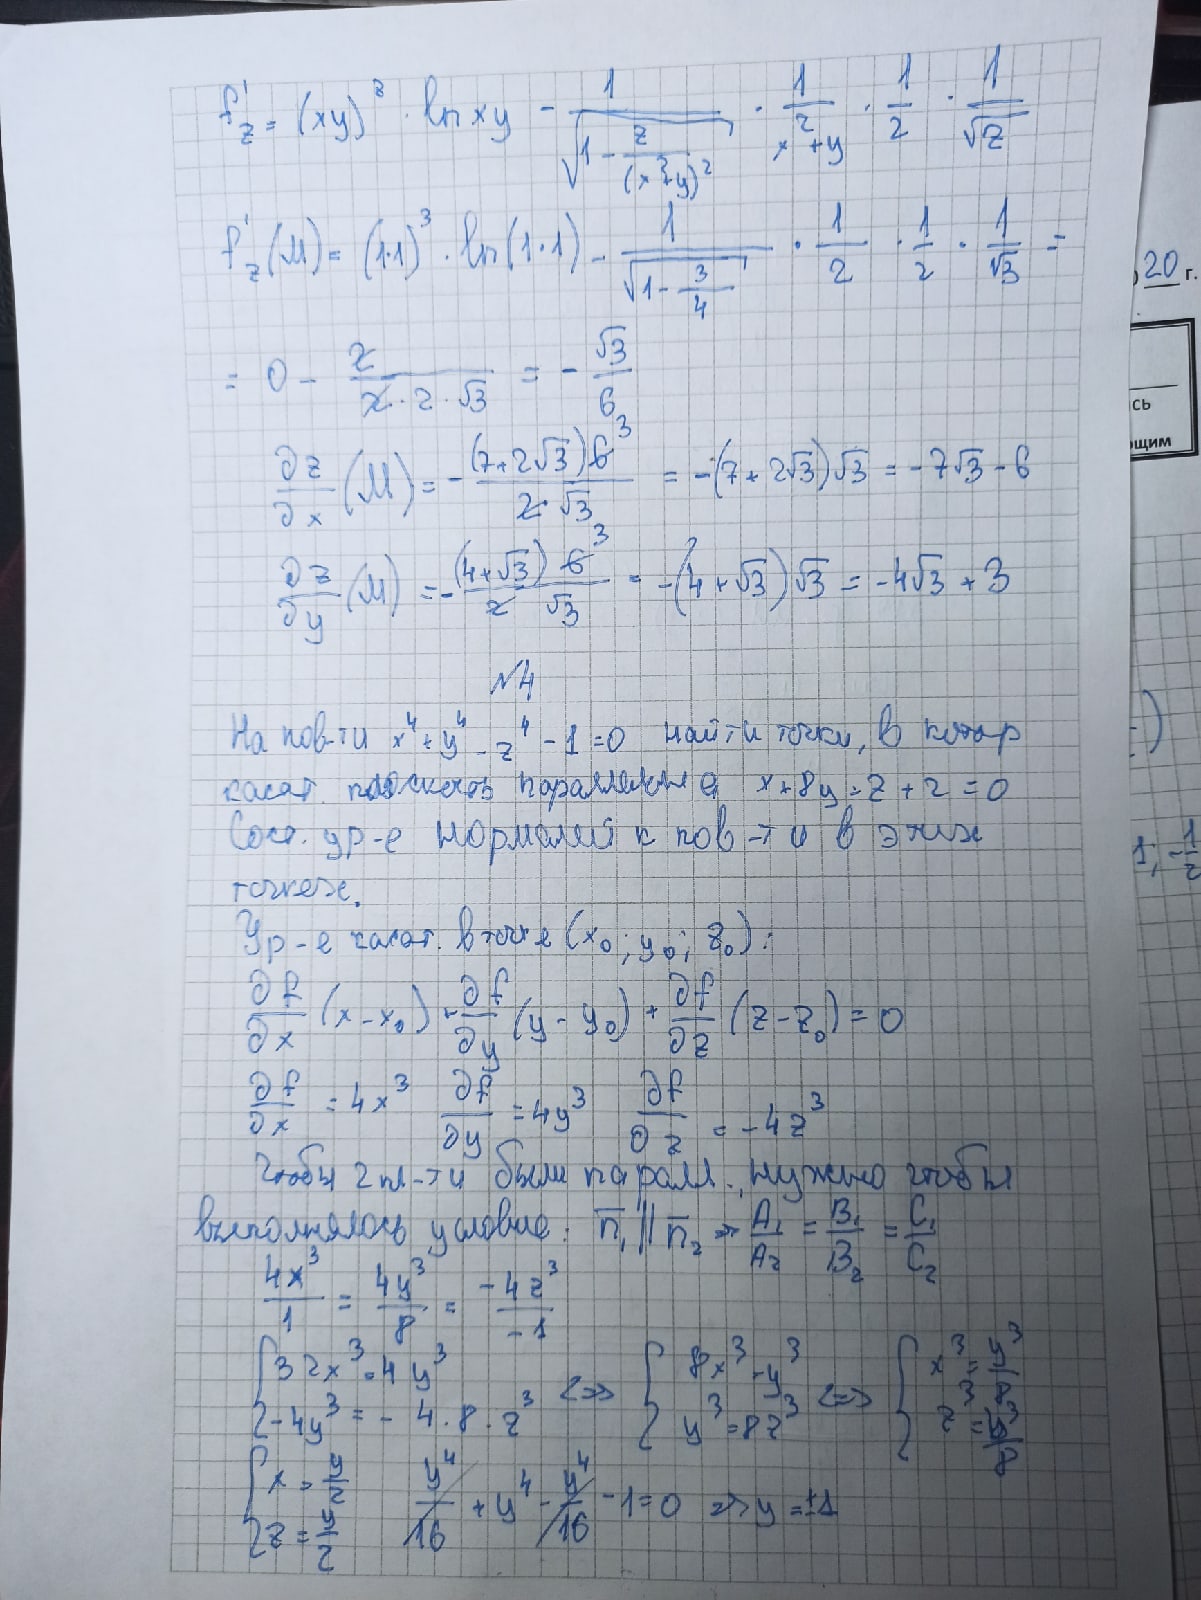 f'z = (xy)^z · ln xy - 1/√(1 - z/(x²+y)²) · 1/(x²+y) · 1/2 · 1/√z
f'z(M) = (1·1)³ · ln(1·1) - 1/√(1 - 3/4) · 1/2 · 1/2 · 1/√3 =
= 0 - 2/(2·2·√3) = - √3/6
∂z/∂x (M) = - (7+2√3)6³/(2·√3) = -(7+2√3)√3 = -7√3 - 6
∂z/∂y (M) = - (4+√3)6³/(2 √3) = -(4+√3)√3 = -4√3 + 3
№4
На пов-ти x⁴+y⁴-z⁴-1=0 найти точки, в котор
касат. плоскость параллельна x+8y-z+2=0
Сост. ур-е нормалей к пов-ти в этих
точках.
Ур-е касат. в точке (x₀; y₀; z₀):
∂f/∂x (x-x₀) + ∂f/∂y (y-y₀) + ∂f/∂z (z-z₀) = 0
∂f/∂x = 4x³ ∂f/∂y = 4y³ ∂f/∂z = -4z³
Чтобы 2 пл-ти были паралл., нужно чтобы
выполнялось условие: n̅₁ || n̅₂ => A₁/A₂ = B₁/B₂ = C₁/C₂
4x³/1 = 4y³/8 = -4z³/-1
{ 32x³ = 4y³ <=> { 8x³ = y³ <=> { x³ = y³/8
-4y³ = -4·8·z³ y³ = 8z³ z³ = y³/8
{ x = y/2 y⁴/16 + y⁴ - y⁴/16 - 1 = 0 => y = ±1
z = y/2
20 г.
сь
ющим
1; -1/2